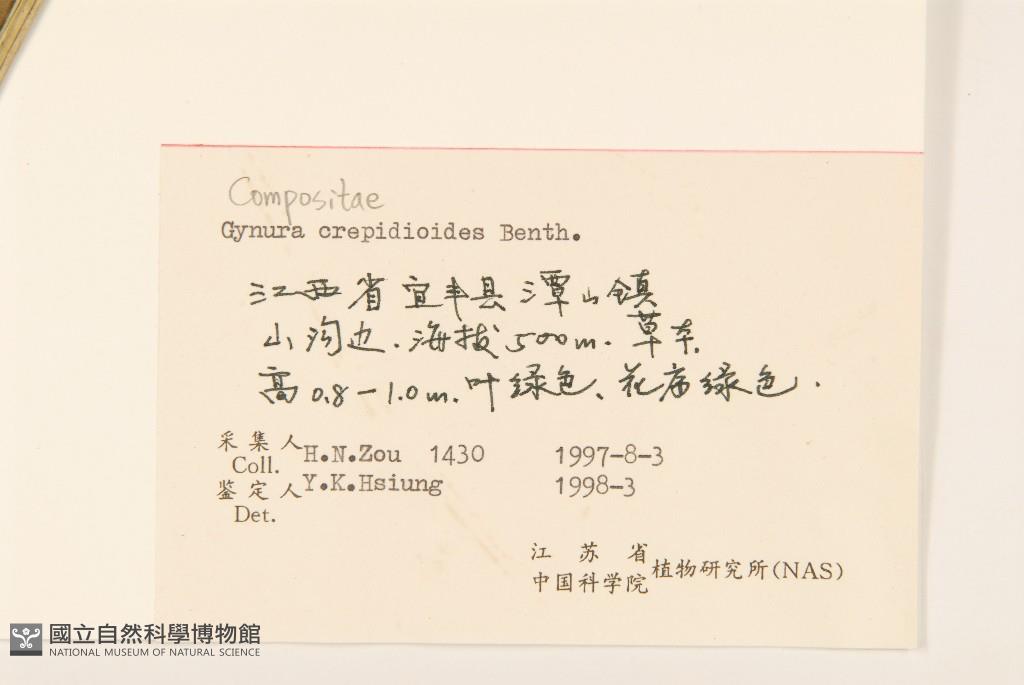 Compositae
Gynura crepidioides Benth.
江西省宜丰县潭山镇
山沟边.海拔500m.草本.
高0.8-1.0m.叶绿色、花序绿色.
采集人 H.N.Zou 1430 1997-8-3
Coll.
鉴定人 Y.K.Hsiung 1998-3
Det.
江苏省
中国科学院 植物研究所(NAS)
國立自然科學博物館
NATIONAL MUSEUM OF NATURAL SCIENCE